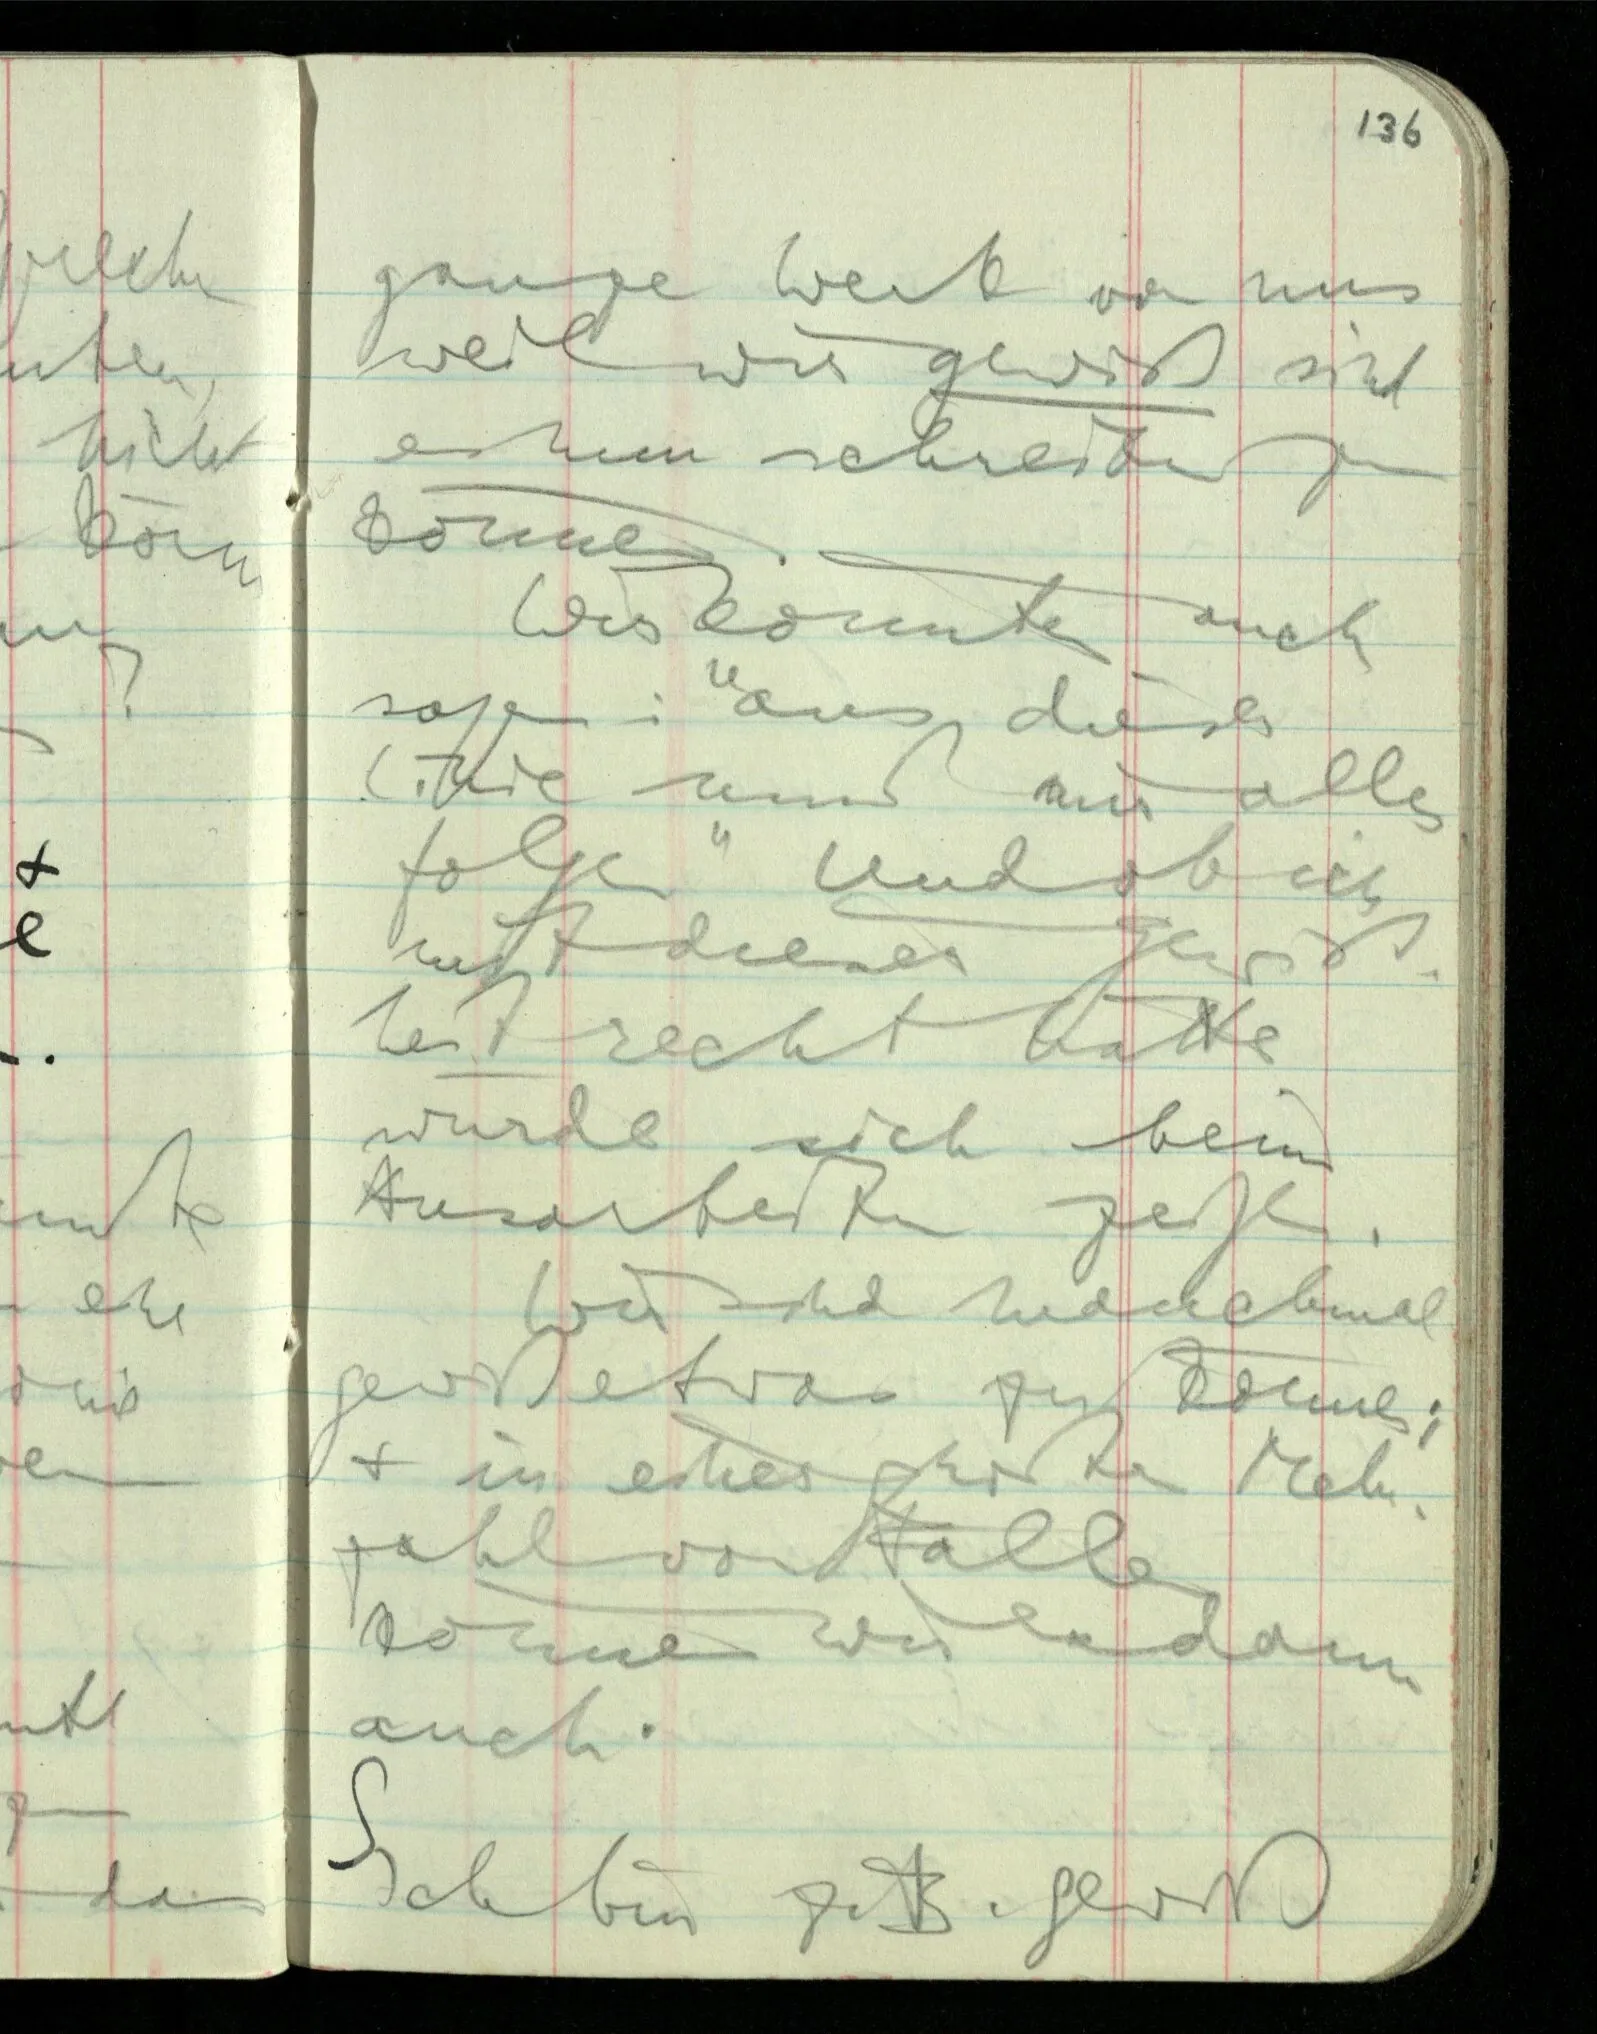 136
ganze Werk vor uns
weil wir gewiß sind
es nun schreiben zu
können.
Wir könnten auch
sagen: "aus dieser
Linie muß mir alles
folgen" Und ob ich
mit dieser Gewiß-
heit recht hatte
würde sich beim
Ausarbeiten zeigen.
Wir sind manchmal
gewiß etwas zu können;
+ in einer großen Mehr-
zahl von Fällen
können wir es dann
auch.
Ich bin z.B. gewiß
nicht
das